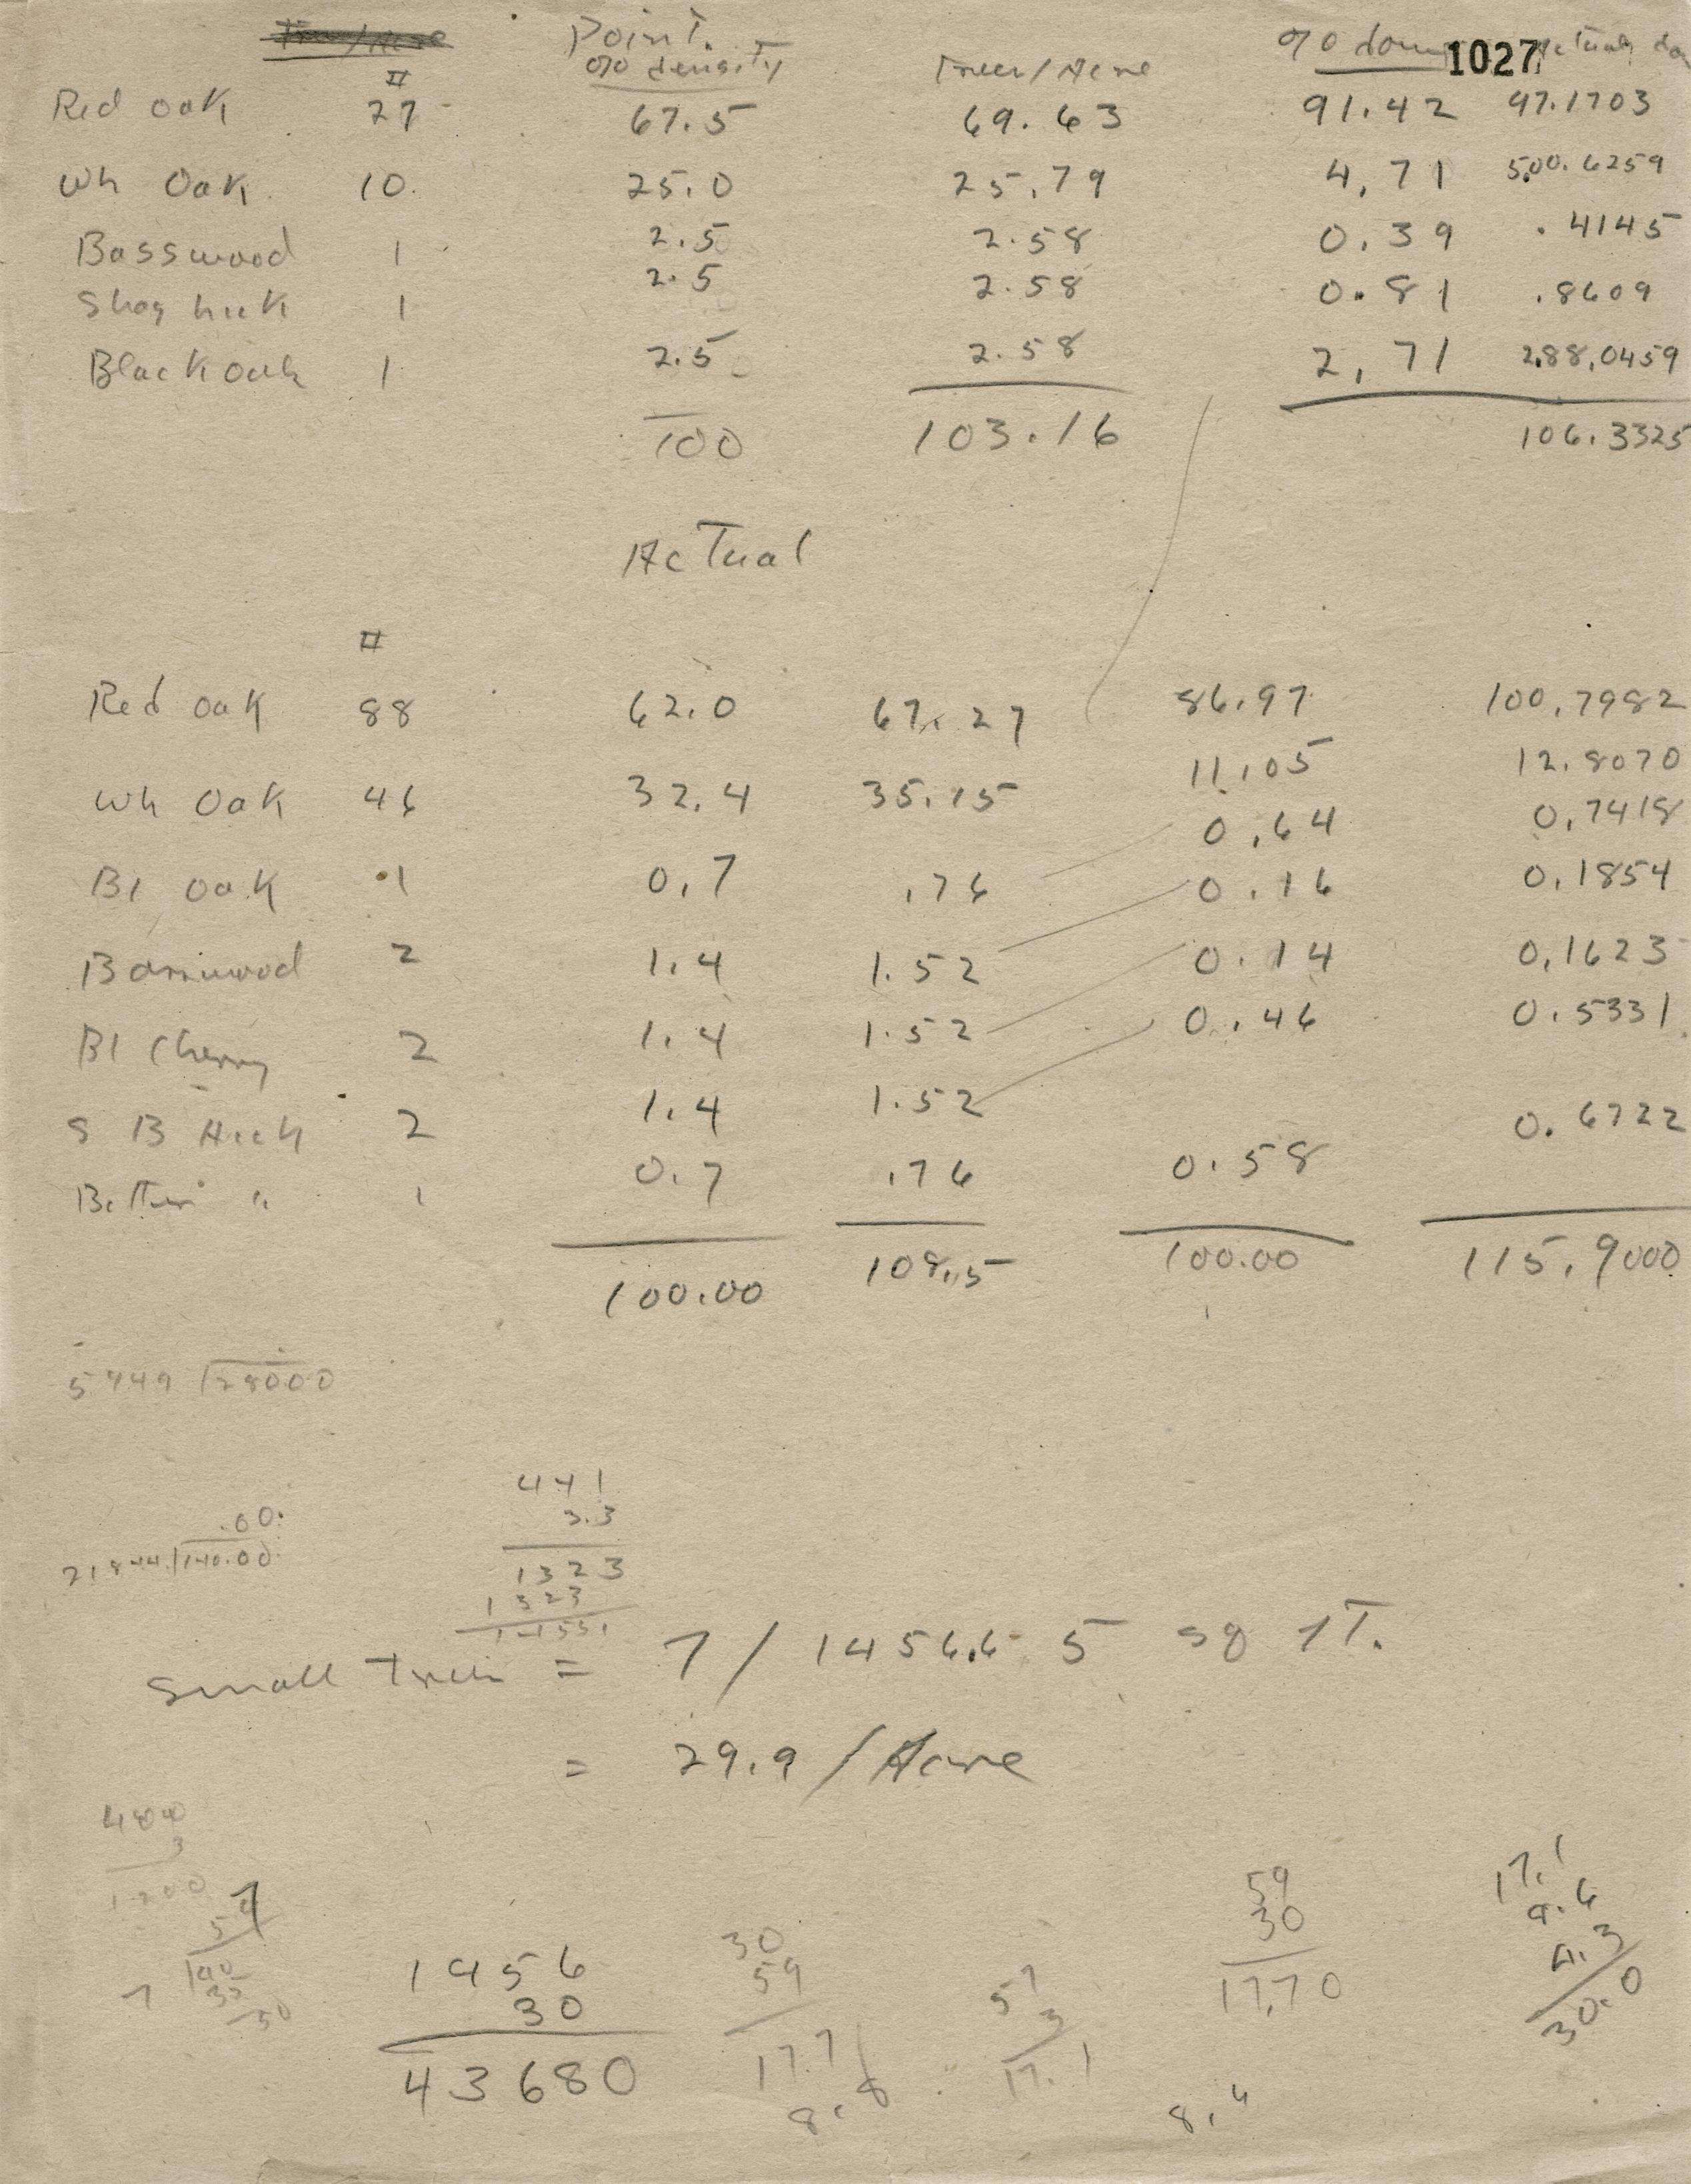 Point.
# % density Trees/Acre % dom 1027 Actual do
Red oak 27 67.5 69.63 91.42 97.1703
Wh Oak 10. 25.0 25.79 4.71 500.6259
Basswood 1 2.5 2.58 0.39 .4145
Shag hick 1 2.5 2.58 0.81 .8609
Black oak 1 2.5 2.58 2.71 288.0459
100 103.16 106.3325
Actual
#
Red oak 88 62.0 67.27 86.97 100.7982
Wh Oak 46 32.4 35.15 11.05 12.8070
Bl oak 1 0.7 .76 0.64 0.7418
Basswood 2 1.4 1.52 0.16 0.1854
Bl Cherry 2 1.4 1.52 0.14 0.1623
S B Hick 2 1.4 1.52 0.46 0.5331
Bittn " 1 0.7 .76 0.58 0.6722
100.00 108.5 100.00 115.9000
5449 28000
441
3.3
.00.
21844. 140.00
1323
1323
14553
Small Trees = 7 / 1456.5 sq ft.
= 29.9 / Acre
400
3
1200
1456
30
43680
30
59
17.7
8.8
57
3
17.1
59
30
17.70
8.4
17.1
9.6
4.3
30.0